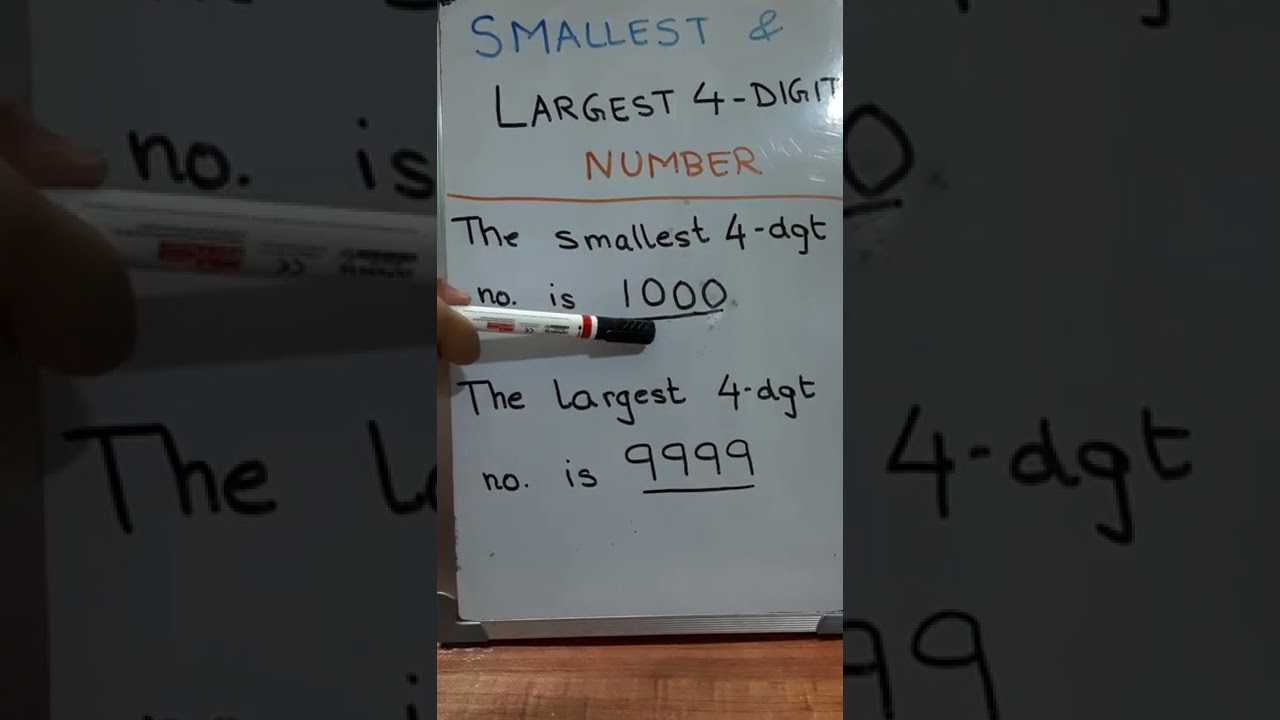 SMALLEST &
LARGEST 4-DIGIT
NUMBER
The smallest 4-dgt
no. is 1000
The largest 4-dgt
no. is 9999